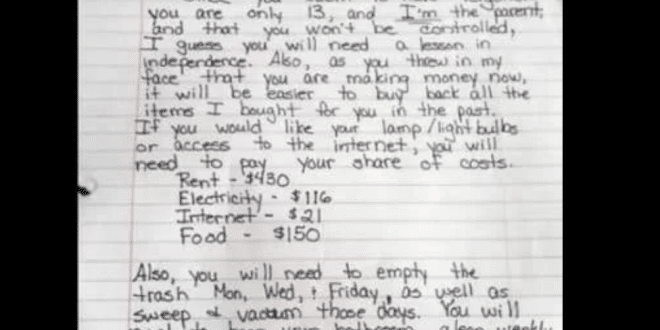 you are only 13, and I'm the parent,
and that you won't be controlled,
I guess you will need a lesson in
independence. Also, as you threw in my
face that you are making money now,
it will be easier to buy back all the
items I bought for you in the past.
If you would like your lamp/lightbulbs
or access to the internet, you will
need to pay your share of costs.
Rent - $430
Electricity - $116
Internet - $21
Food - $150
Also, you will need to empty the
trash Mon, Wed, + Friday, as well as
sweep & vacuum those days. You will